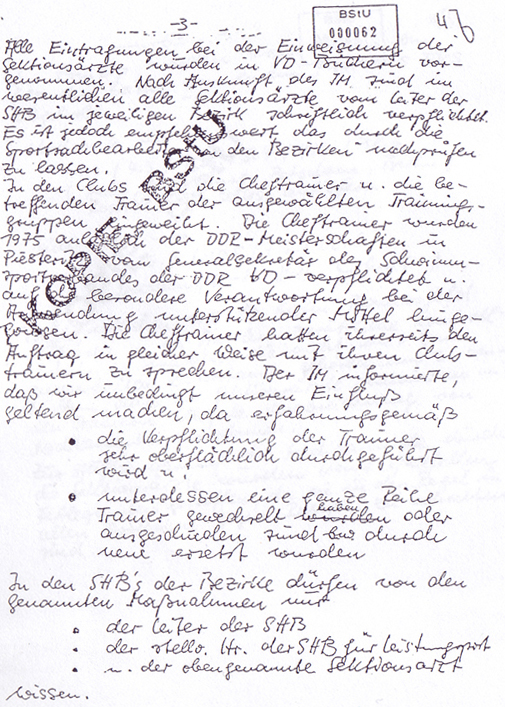 - 3 -
BStU
000062
47
Alle Eintragungen bei der Einweisung der
Sektionsärzte wurden in VD-Büchern vor-
genommen. Nach Auskunft des IM sind im
wesentlichen alle Sektionsärzte vom Leiter der
SHB im jeweiligen Bezirk schriftlich verpflichtet.
Es ist jedoch empfehlenswert das durch die
Sportsachbearbeiter in den Bezirken nachprüfen
zu lassen.
In den Clubs sind die Cheftrainer u. die be-
treffenden Trainer der ausgewählten Trainings-
gruppen eingeweiht. Die Cheftrainer wurden
1975 anläßlich der DDR-Meisterschaften in
Piesteritz vom Generalsekretär des Schwimm-
sportverbandes der DDR VD-verpflichtet u.
auf die besondere Verantwortung bei der
Anwendung unterstützender Mittel hinge-
wiesen. Die Cheftrainer hatten ihrerseits den
Auftrag in gleicher Weise mit ihren Club-
trainern zu sprechen. Der IM informierte,
daß wir unbedingt unseren Einfluß
geltend machen, da erfahrungsgemäß
• die Verpflichtung der Trainer
sehr oberflächlich durchgeführt
wird u.
• unterdessen eine ganze Reihe
Trainer gewechselt haben oder
ausgeschieden sind bzw durch
neue ersetzt wurden
In den SHB's der Bezirke dürfen von den
genannten Maßnahmen nur
• der Leiter der SHB
• der stellv. Ltr. der SHB für Leistungssport
• u. der obengenannte Sektionsarzt
wissen.
KOPIE BStU